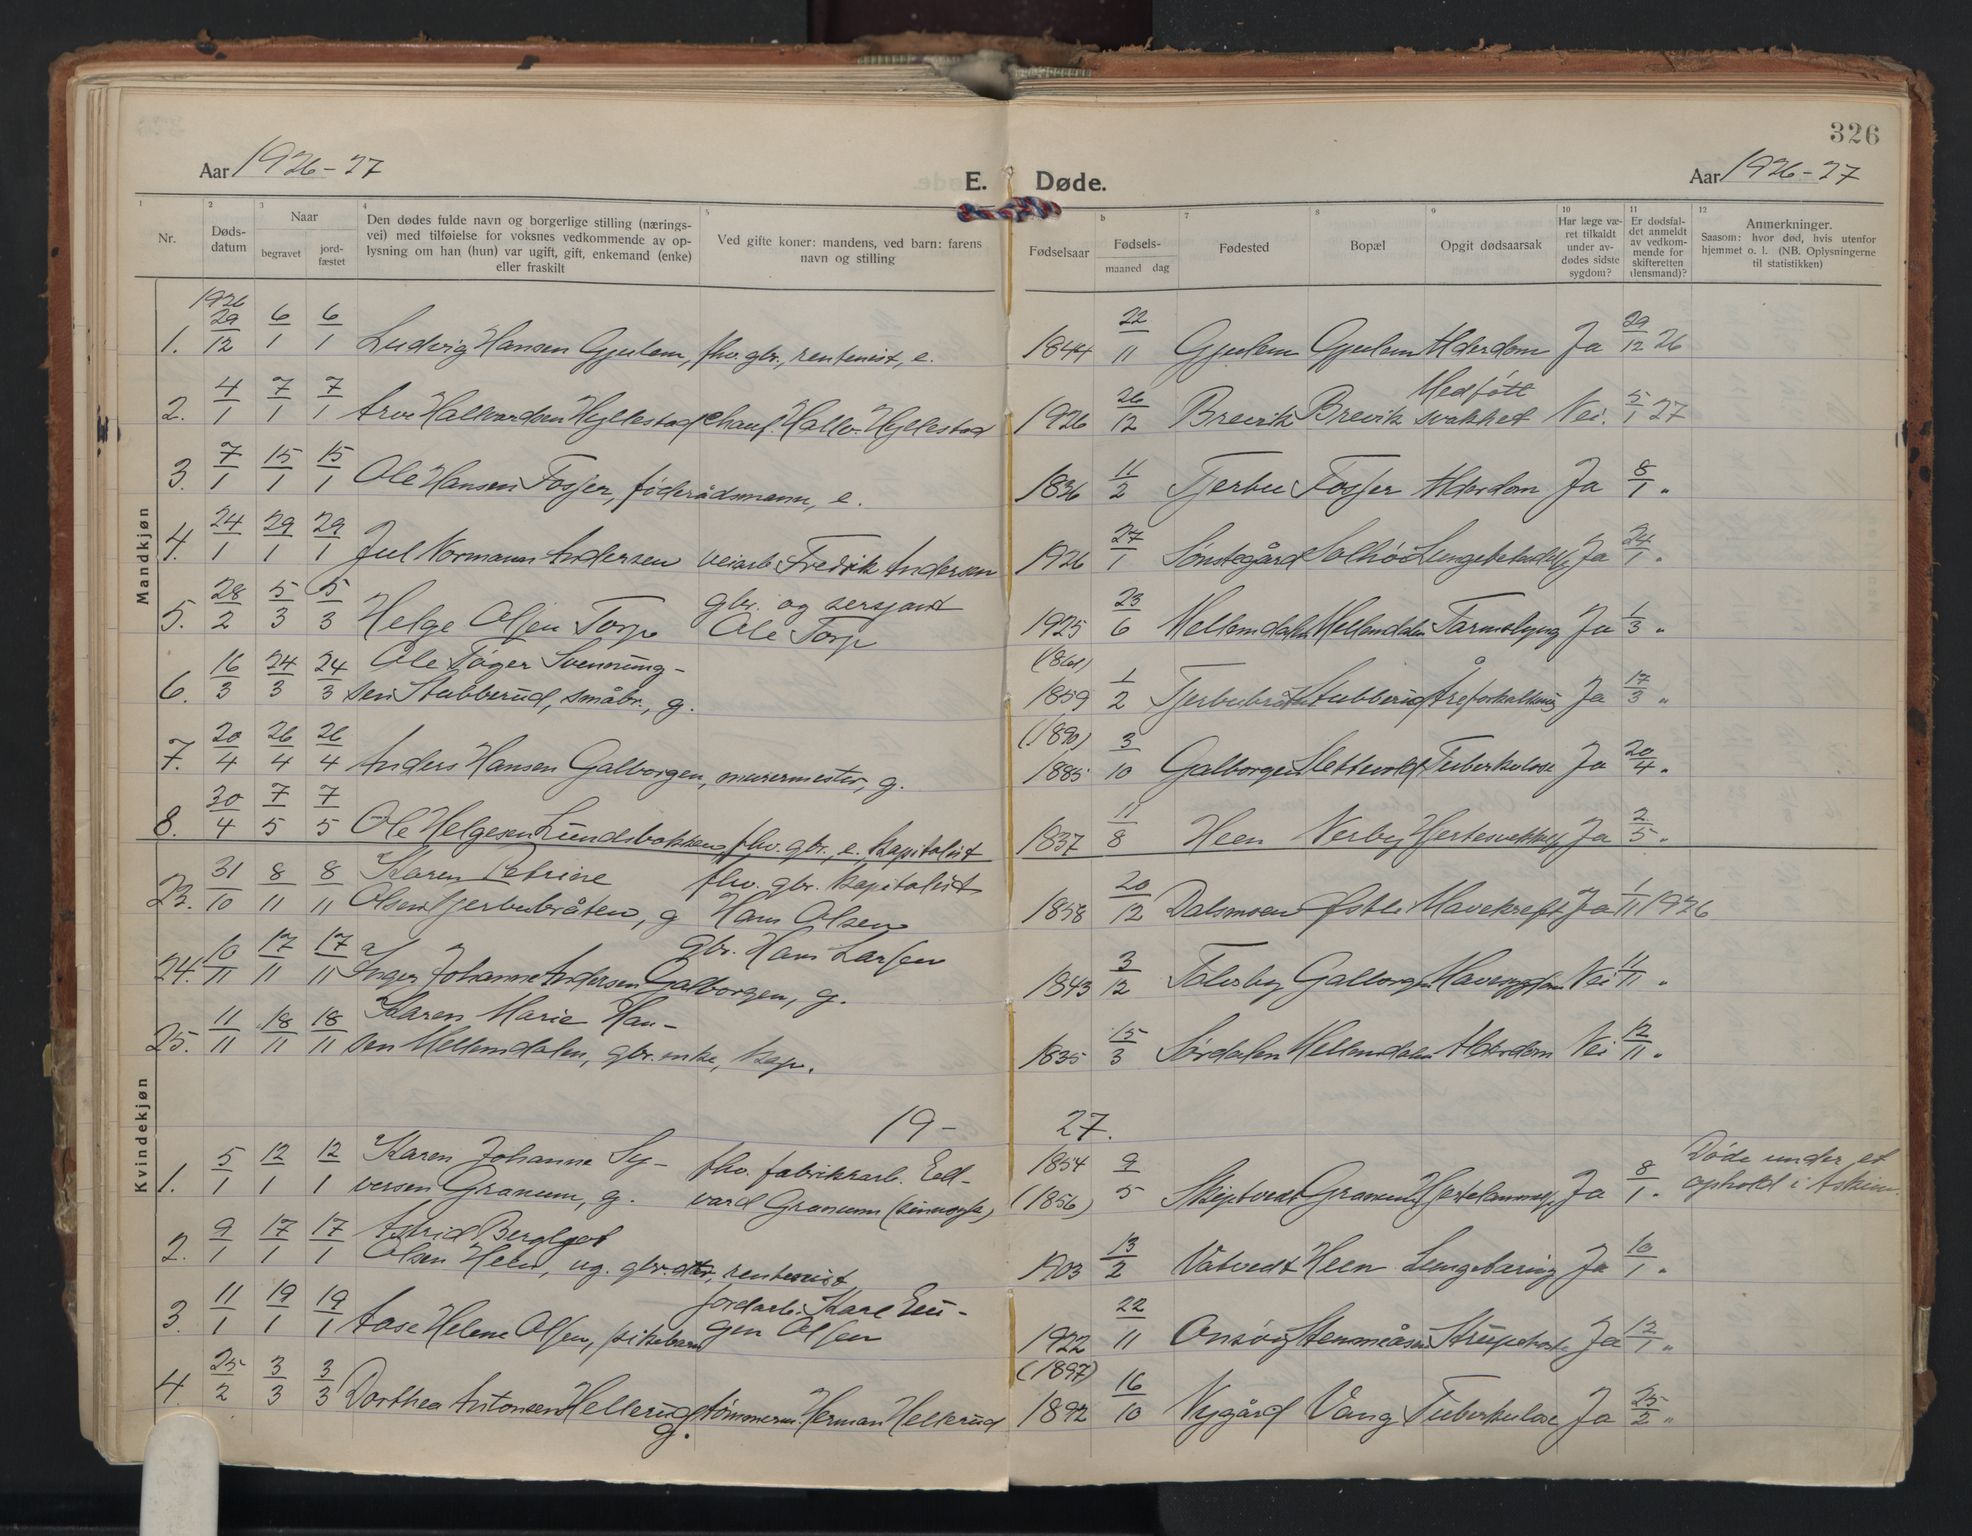 326
Aar 1926-27 E. Døde. Aar 1926-27
1 Nr.
2 Dødsdatum
3 Naar begravet jordfæstet
4 Den dødes fulde navn og borgerlige stilling (næringsvei) med tilføielse for voksnes vedkommende av oplysning om han (hun) var ugift, gift, enkemand (enke) eller fraskilt
5 Ved gifte koner: mandens, ved barn: farens navn og stilling
Fødselsaar
b Fødsels- maaned dag
7 Fødested
8 Bopæl
9 Opgit dødsaarsak
10 Har læge været tilkaldt under avdødes sidste sygdom?
11 Er dødsfaldet anmeldt av vedkommende for skifteretten (lensmand)?
12 Anmerkninger. Saasom: hvor død, hvis utenfor hjemmet o. l. (NB. Oplysningerne til statistikken)
Mandkjøn
1926
1. 29/12 6/1 6/1 Ludvig Hansen Gjulem, fhv. gbr., rentenist, e. 1844 22/11 Gjulem Gjulem Alderdom Ja 29/12 26
2. 4/1 7/1 7/1 Arve Halvardsen Hyllestad chauf. Hallv. Hyllestad 1926 26/12 Brevik Brevik Medfött svakhet Nei. 5/1 27
3. 7/1 15/1 15/1 Ole Hansen Fosser, föderådsmann, e. 1836 11/2 Tjerbu Fosser Alderdom Ja 8/1 "
4. 24/1 29/1 29/1 Jul Normann Andersen veiarb. Fredrik Andersen 1926 27/1 Sönstegård Solhöi Ja 24/1 "
5. 28/2 5/3 5/3 Helge Olsen Torp gbr. og sersjant
Ole Torp 1925 23/6 Hellemdalen Hellemdalen Tarmslyng Ja 1/3 "
6. 16/3 24/3 24/3 Ole Töger Svennung-
sen Stubberud, småbr., g. (1861) 1859 1/2 Tjerbubråten Stubberud Åreforkalkning Ja 17/3 "
7. 20/4 26/4 26/4 Anders Hansen Galborgen, murermester, g. (1890) 1885 3/10 Galborgen Slettvold Tuberkulose Ja 20/4 "
8. 30/4 7/5 7/5 Ole Helgesen Lundsbakken, fhv. gbr., e. kapitalist 1837 11/8 Heen Nerby Ja 2/5 "
23. 31/10 8/11 8/11 Karen Petrine fhv. gbr. kapitalist
Olsen Tjerbubråten, g Hans Olsen 1858 20/12 Dalsmoen Østli Mavekreft Ja 1/11 1926
24. 10/11 17/11 17/11 gbr. Hans Larsen
Inga Johanne Andersen Galborgen, g. 1843 3/12 Tolerby Galborgen Mavesygdom Nei 11/11 "
25. 11/11 18/11 18/11 Karen Marie Han-
sen Hellemdalen, gbr. enke, kap. 1835 15/3 Sørdalen Hellemdalen Alderdom Nei 12/11 "
Kvindekjøn
19- 27.
1. 5/1 12/1 12/1 Karen Johanne Sy- fhv. fabrikkarb. Ed-
versen Granum, g. vard Granum 1854 (1856) 9/5 Skiptvedt Granum Ja 8/1 " Døde under et
ophold i Askim.
2. 9/1 17/1 17/1 Astrid Bergljot
Olsen Heen, ug. gbr. dtr., rentenist 1903 13/2 Våtvedt Heen Lungetæring Ja 10/1 "
3. 11/1 19/1 19/1 jordarb. Karl Eu-
Aase Helene Olsen, pikebarn gen Olsen 1922 22/11 Onsöy Stenmåsen Strupehoste Ja 12/1 "
4. 25/2 3/3 3/3 Dorthea Antonsen Hellerud, g. tömmerm. Herman Hellerud (1897) 1892 16/10 Nygård Vang Tuberkulose Ja 25/2 "